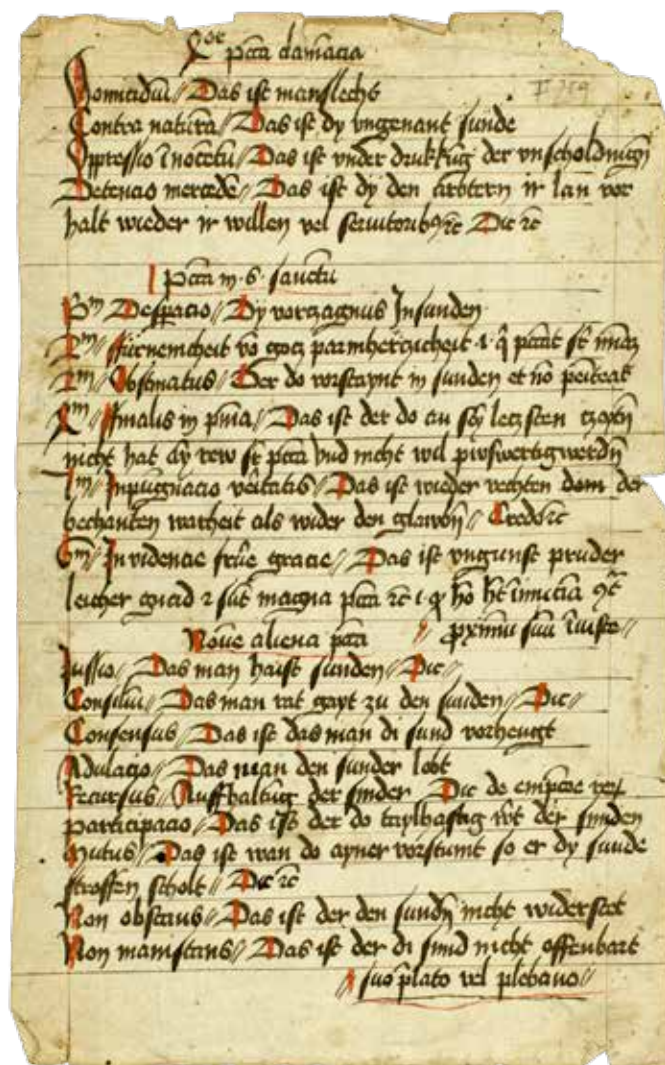 pctā damācia
Homicidiū // Das ist manslecht
Contra naturā // Das ist dy ungenant sunde
Oppressio īnocētū // Das ist vnder drukkūg der vnscholdnugn
Detencio mercedē // Das ist dy den arbtern ir lan vor
halt wieder ir willen vel seruitoribꝫ ꝛc Dic ꝛc
pctā in · s · sanctū
Pm Despacio // Dy vorczagnus In sunden
vō gocz parmherczicheit
Obstinatus // Der do vorstaynt in sunden et nō peniteat
Finalis in pnīa // Das ist der do an sey letzsten
nicht hat dy rew sr pctā vnd nicht wil puswertig werdn
Inpugnacio vēitatis // Das ist wieder vechten dem der
bechanten warheit als wider den glawbn // Credo ꝛc
Gm Invidencie frn̄e gracie // Das ist vngunst pruder
leicher gnad ꝛ sūt magna pctā ꝛc
proximū suū īiuste //
Noue aliena pctā
Jussio // Das man haist sunden // Dic //
Consiliū // Das man rat gayt zu den sunden // Dic //
Consensus // Das ist das man di sund vorhengt
Adulacio // Das man den sunder lobt
Recursus // Auffhaltūg der sunder Dic de
participacio // Das ist der do taylhaftig wt der sunden
Mutus // Das ist wan do ayner vorstumt so er dy sunde
stroffen scholt // Dic ꝛc
Non obstans // Das ist der den sundn nicht widerstet
Non manifestans // Das ist der di sund nicht offenbart
suo plato vel plebano //